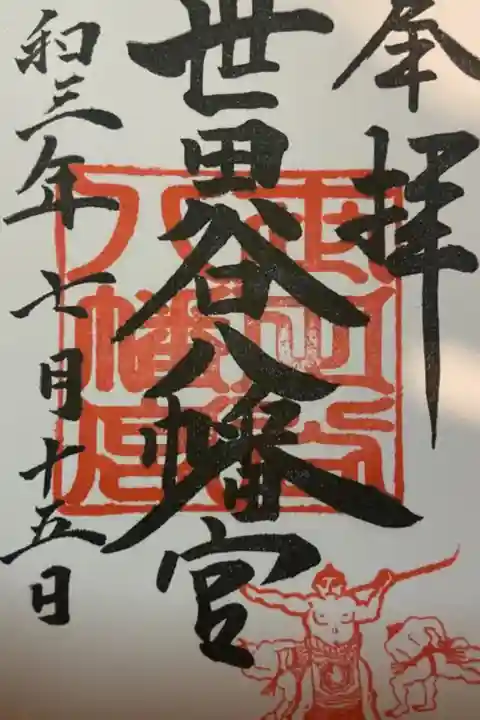 奉拝
世田谷八幡宮
和三年七月十五日